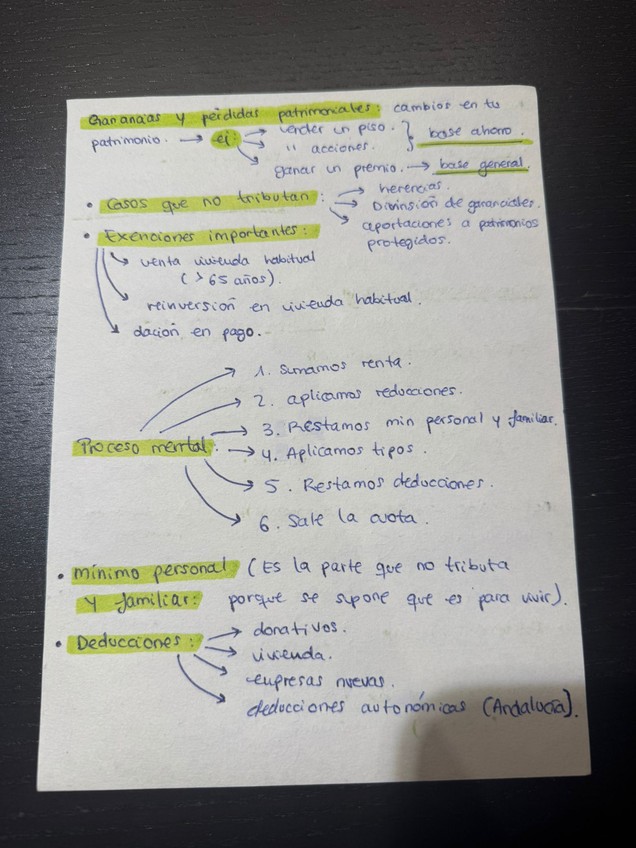 Ganancias y pérdidas patrimoniales: cambios en tu
patrimonio. → ej: → vender un piso. } base ahorro.
→ " acciones.
→ ganar un premio. → base general.
• Casos que no tributan: → herencias.
→ Divinsión de gananciales.
→ aportaciones a patrimonios
protegidos.
• Exenciones importantes:
→ venta vivienda habitual
(>65 años).
→ reinversión en vivienda habitual.
→ dación en pago.
Proceso mental: → 1. Sumamos renta.
→ 2. aplicamos reducciones.
→ 3. Restamos min personal y familiar.
→ 4. Aplicamos tipos.
→ 5. Restamos deducciones.
→ 6. Sale la cuota.
• mínimo personal (Es la parte que no tributa
y familiar: porque se supone que es para vivir).
• Deducciones: → donativos.
→ vivienda.
→ empresas nuevas.
→ deducciones autonómicas (Andalucía).